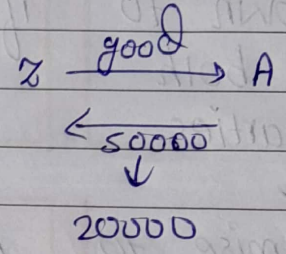 good
Z → A
← 50000
↓
20000